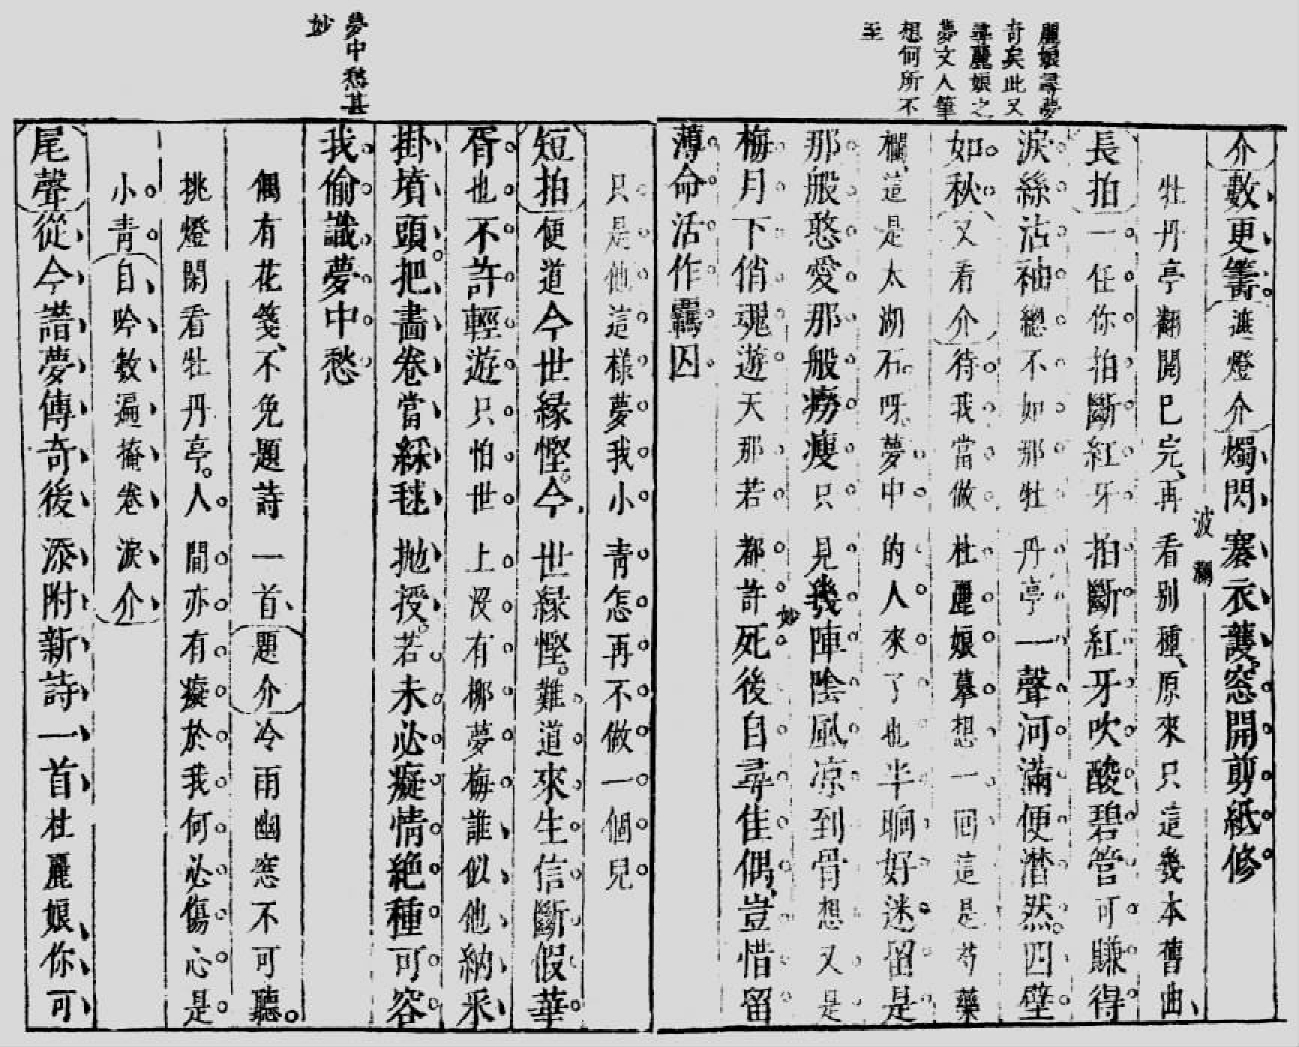 麗娘尋夢
奇矣此又
尋麗娘之
夢文人筆
想何所不
至
介數更籌進燈介燭閃寨衣護窓開剪紙修
波瀾
牡丹亭翻閱已完、再看別種、原來只這幾本舊曲、
長拍一任你拍斷紅牙拍斷紅牙吹酸碧管可賺得
淚絲沾袖總不如那牡丹亭一聲河滿便潸然四壁
如秋又看介待我當做杜麗娘摹想一回這是芍藥
欄、這是太湖石呀、夢中的人來了也半晌好迷留是
那般憨愛那般癆瘦只見幾陣陰風凉到骨想又是
妙
梅月下俏魂遊天那若都許死後自尋佳偶、豈惜留
薄命活作羈囚
只是他這樣夢我小青怎再不做一個兒
夢中愁甚
妙
短拍便道今世緣慳。今世緣慳。難道來生信斷假華
胥也不許輕遊只怕世上沒有柳夢梅誰似他納采
掛墳頭把畫卷當綵毬抛授。若未必癡情絶種可容
我偷識夢中愁
偶有花箋、不免題詩一首、題介冷雨幽窓不可聽。
挑燈閑看牡丹亭。人間亦有癡於我何必傷心是
小青自吟數遍掩卷淚介
尾聲從今譜夢傳奇後添附新詩一首杜麗娘、你可